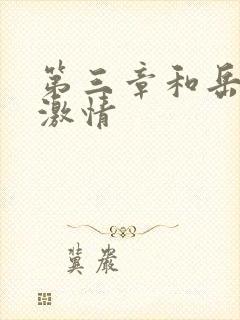 第三章和岳
激情
冀严